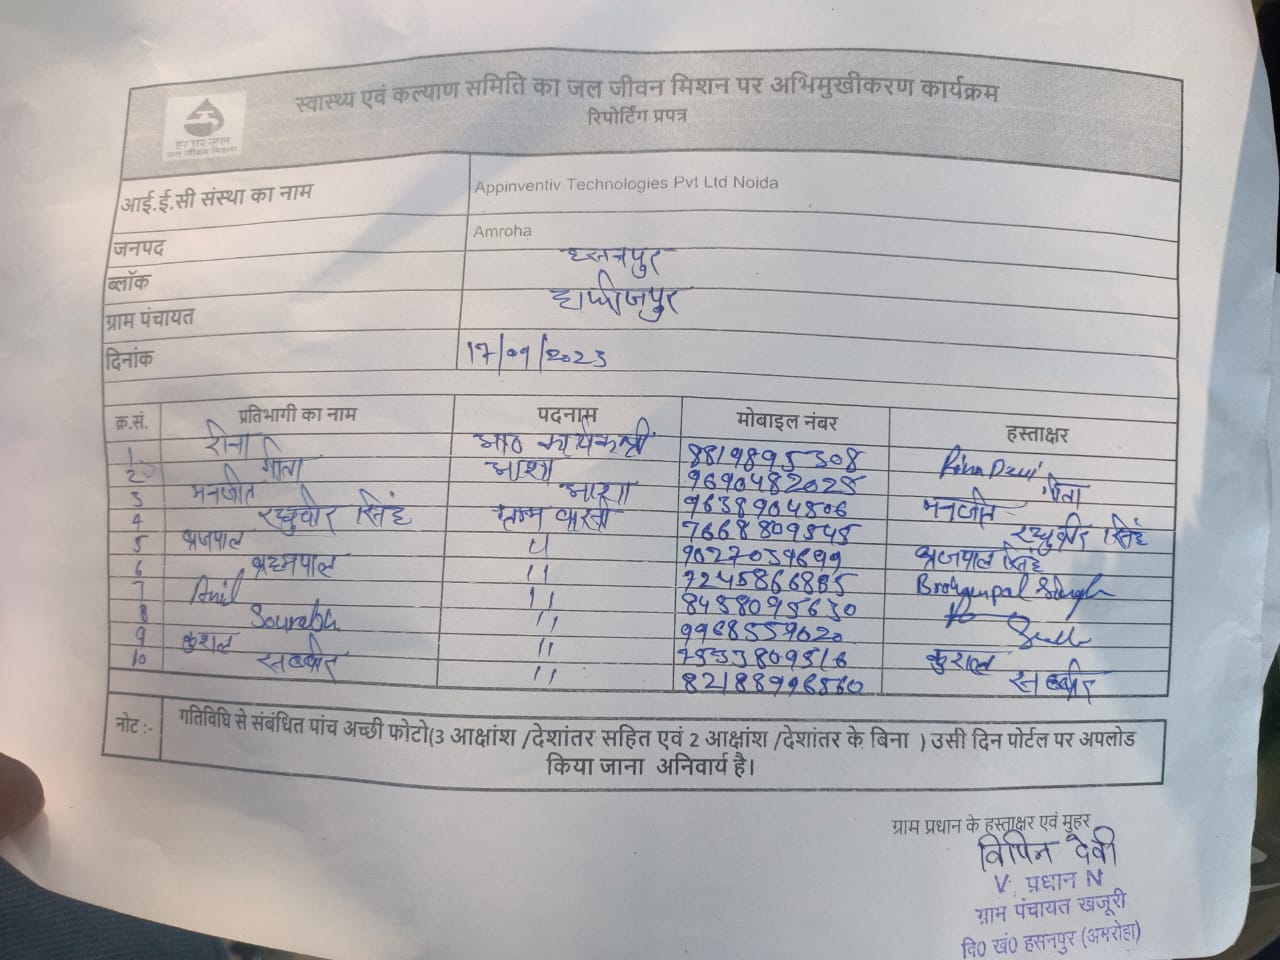 स्वास्थ्य एवं कल्याण समिति का जल जीवन मिशन पर अभिमुखीकरण कार्यक्रम
रिपोर्टिंग प्रपत्र
हर घर जल
जल जीवन मिशन
आई.ई.सी संस्था का नाम Appinventiv Technologies Pvt Ltd Noida
जनपद Amroha
ब्लॉक हसनपुर
ग्राम पंचायत
दिनांक 17/09/2023
क्र.सं. प्रतिभागी का नाम पदनाम मोबाइल नंबर हस्ताक्षर
1 रीना आ० कार्यकत्री 8819895308 Rina Devi
2 गीता आशा 9690482025 गीता
3 मनजीत आशा 9638904806 मनजीत
4 रघुवीर सिंह ग्राम वासी 7668809545 रघुवीर सिंह
5 ब्रजपाल 〃 ब्रजपाल सिंह
6 〃 7245866885
7 Anil 〃 8458095630
8 Sourabh 〃 9968559020
9 कुशल 〃 कुशल
10 〃 82188996560
नोट :- गतिविधि से संबंधित पांच अच्छी फोटो(3 आक्षांश /देशांतर सहित एवं 2 आक्षांश /देशांतर के बिना ) उसी दिन पोर्टल पर अपलोड
किया जाना अनिवार्य है।
ग्राम प्रधान के हस्ताक्षर एवं मुहर
विपिन देवी
प्रधान
ग्राम पंचायत खजूरी
वि0 खं0 हसनपुर (अमरोहा)